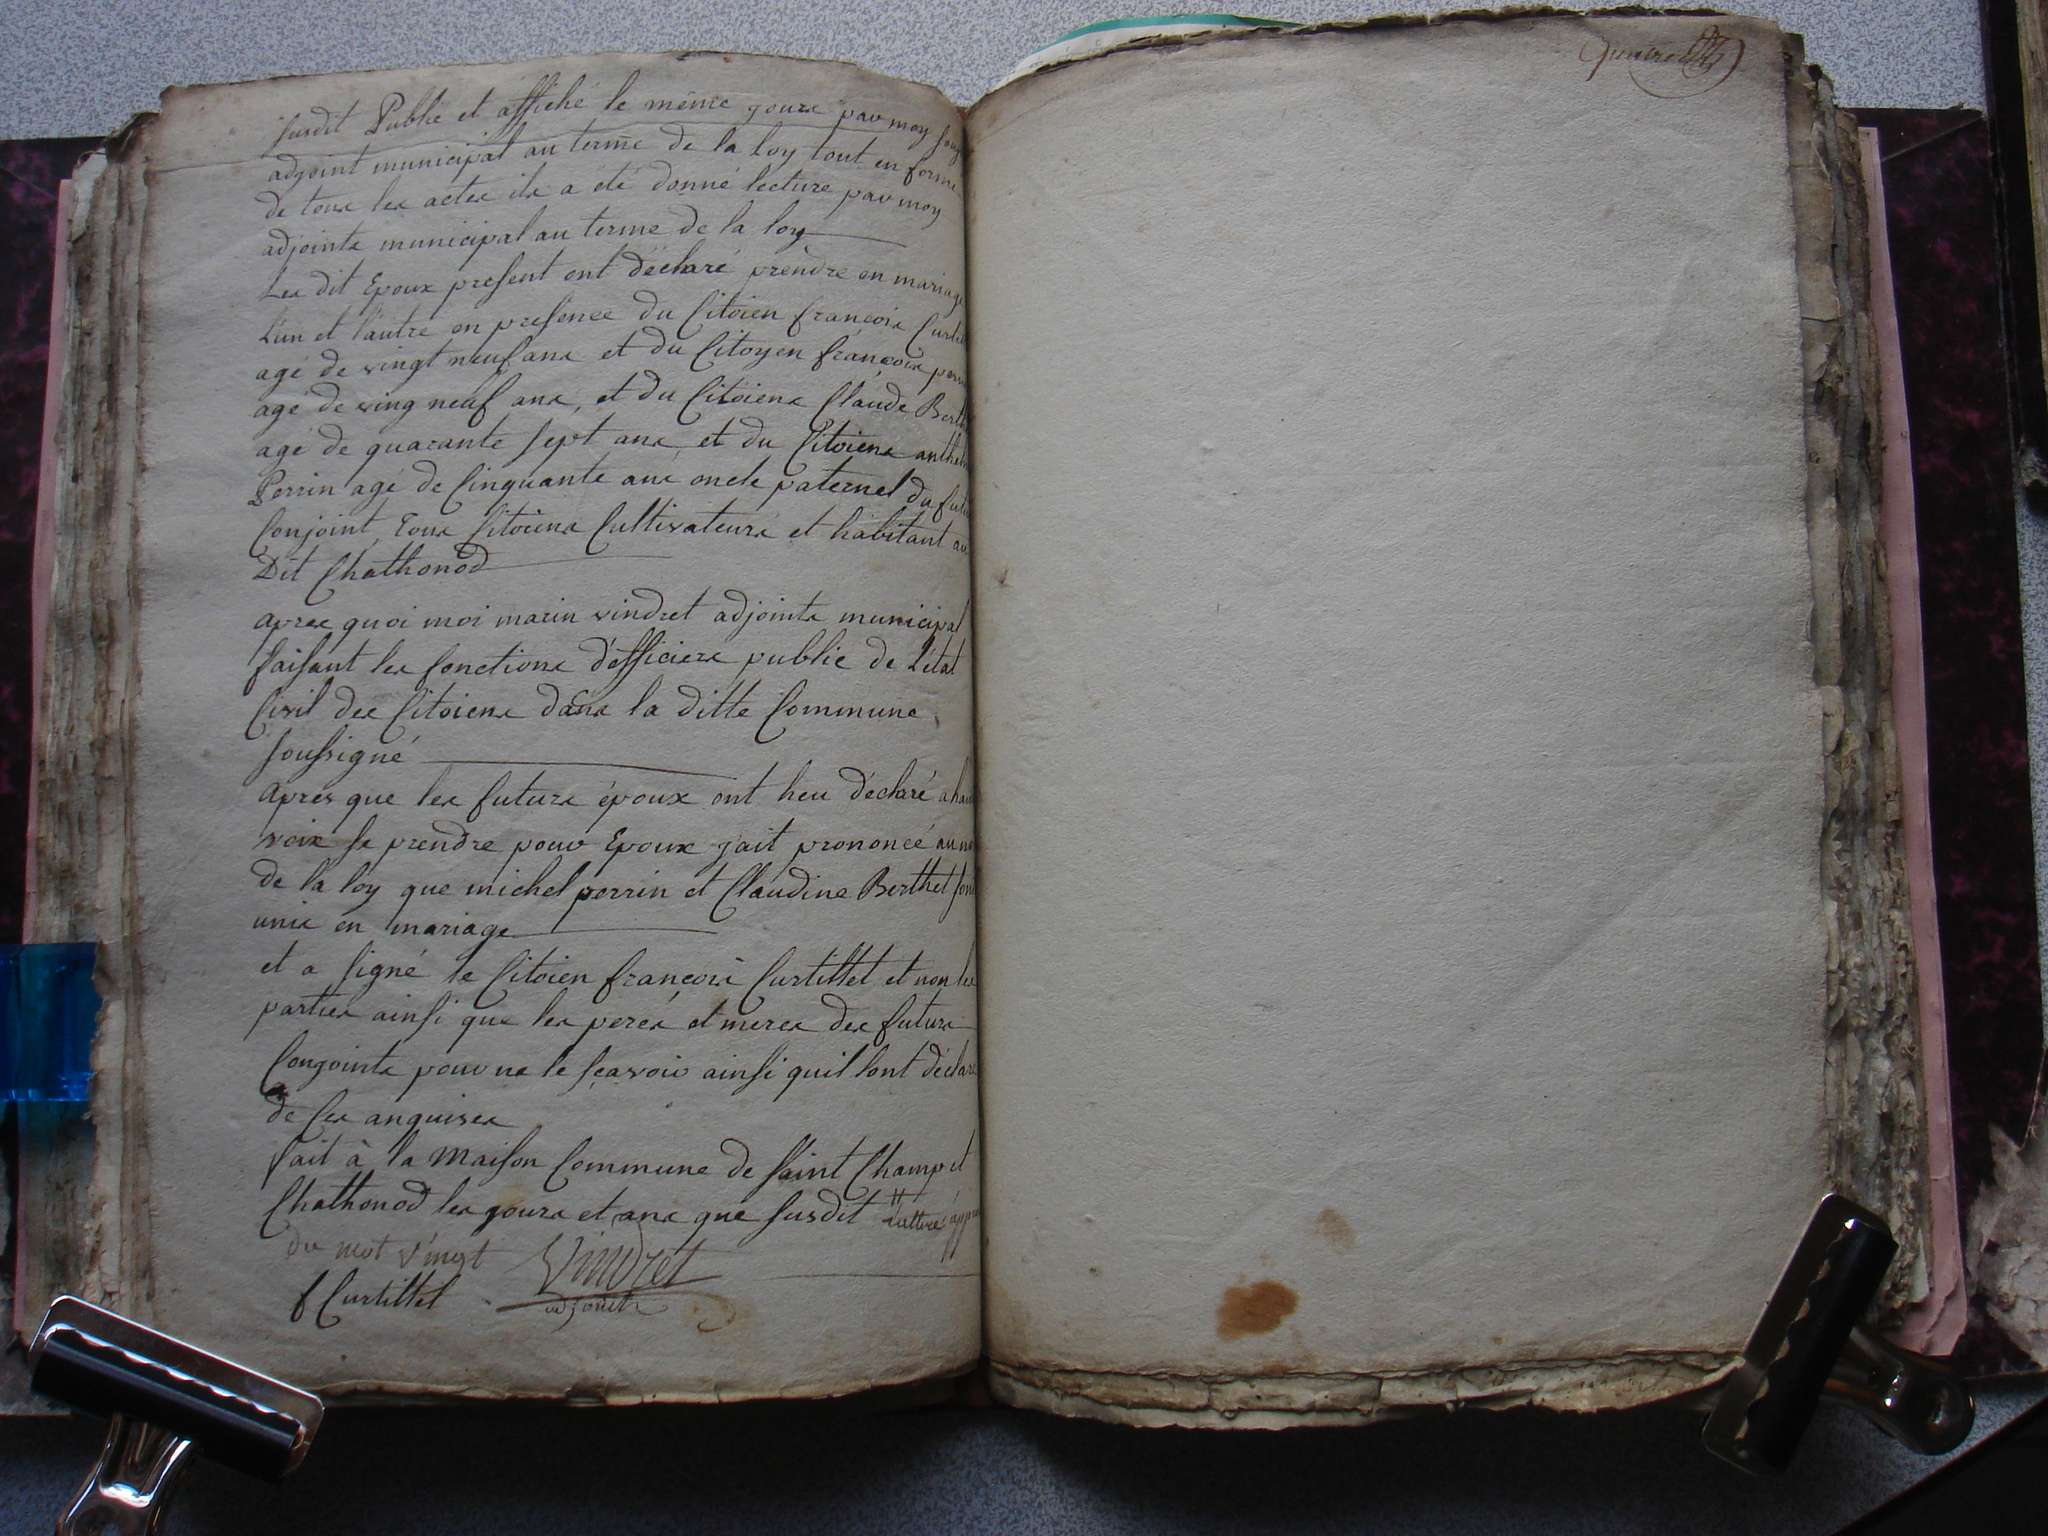 susdit Publié et affiché le même jours par moy
adjoint municipal au terme de la Loy tout en forme
de tous les actes ils a été donné lecture par moy
adjoints municipal au terme de la loy
Les dit Epoux present ont déclaré prendre en mariage
L'un et l'autre en presence du Citoien françois Curtil
agé de vingt neuf ans et du Citoyen françois perrin
agé de ving neuf ans, et du Citoiens Claude Berthet
agé de quarante sept ans et du Citoiens anthel
Perrin agé de Cinquante ans oncle paternel du futur
Conjoint, Tous Citoiens Cultivateurs et habitant au
Dit Chathonod
apres quoi moi marin vindret adjoints municipal
faisant les fonctions d'officiers public de L'état
Civil des Citoiens dans la ditte Commune
soussigné
apres que les futurs époux ont heu déclaré a haute
voix se prendre pour Epoux j'ait prononcé au nom
de la loy que michel perrin et Claudine Berthet sont
unis en mariage
et a signé le Citoien françois Curtillet et non les
parties ainsi que les peres et meres des futurs
Conjoints pour ne le sçavoir ainsi quil l'ont déclaré
de Ces anquises
fait à la Maison Commune de Saint Champ et
Chathonod les jours et ans que susdit
du mot vingt Vindret
f Curtillet adjoint